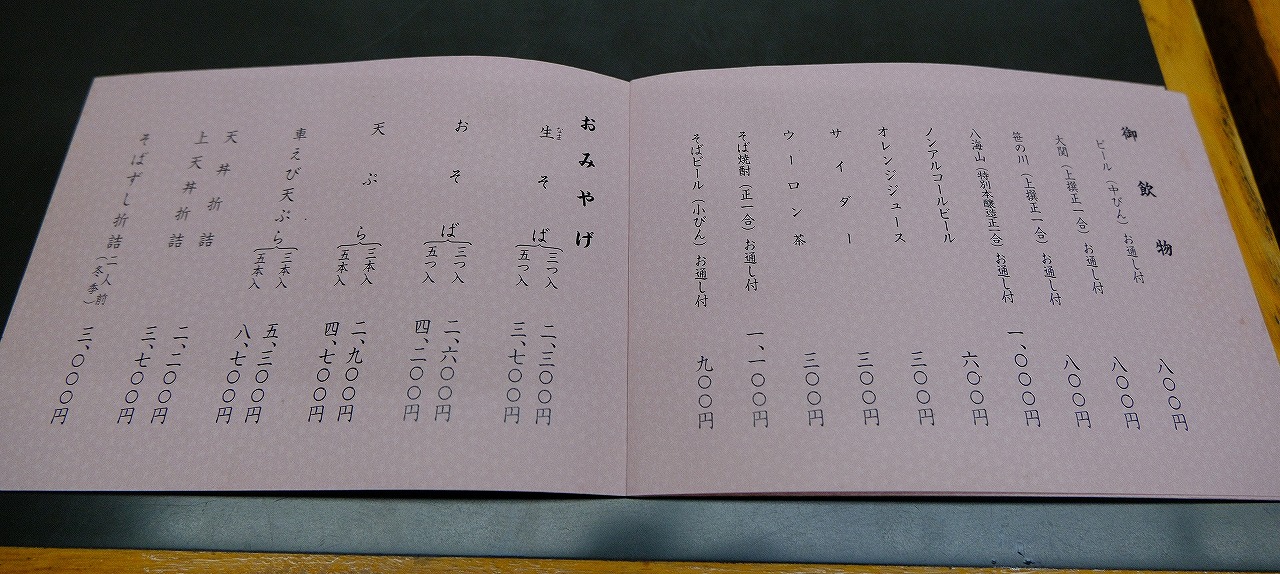 御飲物
ビール（中びん）お通し付 八〇〇円
大関（上撰正一合）お通し付 八〇〇円
笹の川（上撰正一合）お通し付 八〇〇円
八海山（特別本醸造正一合）お通し付 一、〇〇〇円
ノンアルコールビール 六〇〇円
オレンジジュース 三〇〇円
サイダー 三〇〇円
ウーロン茶 三〇〇円
そば焼酎（正一合）お通し付 一、一〇〇円
そばビール（小びん）お通し付 九〇〇円
おみやげ
生そば 三つ入 二、三〇〇円
なま
五つ入 三、七〇〇円
おそば 三つ入 二、六〇〇円
五つ入 四、二〇〇円
天ぷら 三本入 二、九〇〇円
五本入 四、七〇〇円
車えび天ぷら 三本入 五、三〇〇円
五本入 八、七〇〇円
天丼折詰 二、二〇〇円
上天丼折詰 三、七〇〇円
そばずし折詰 二人前（冬季） 三、〇〇〇円